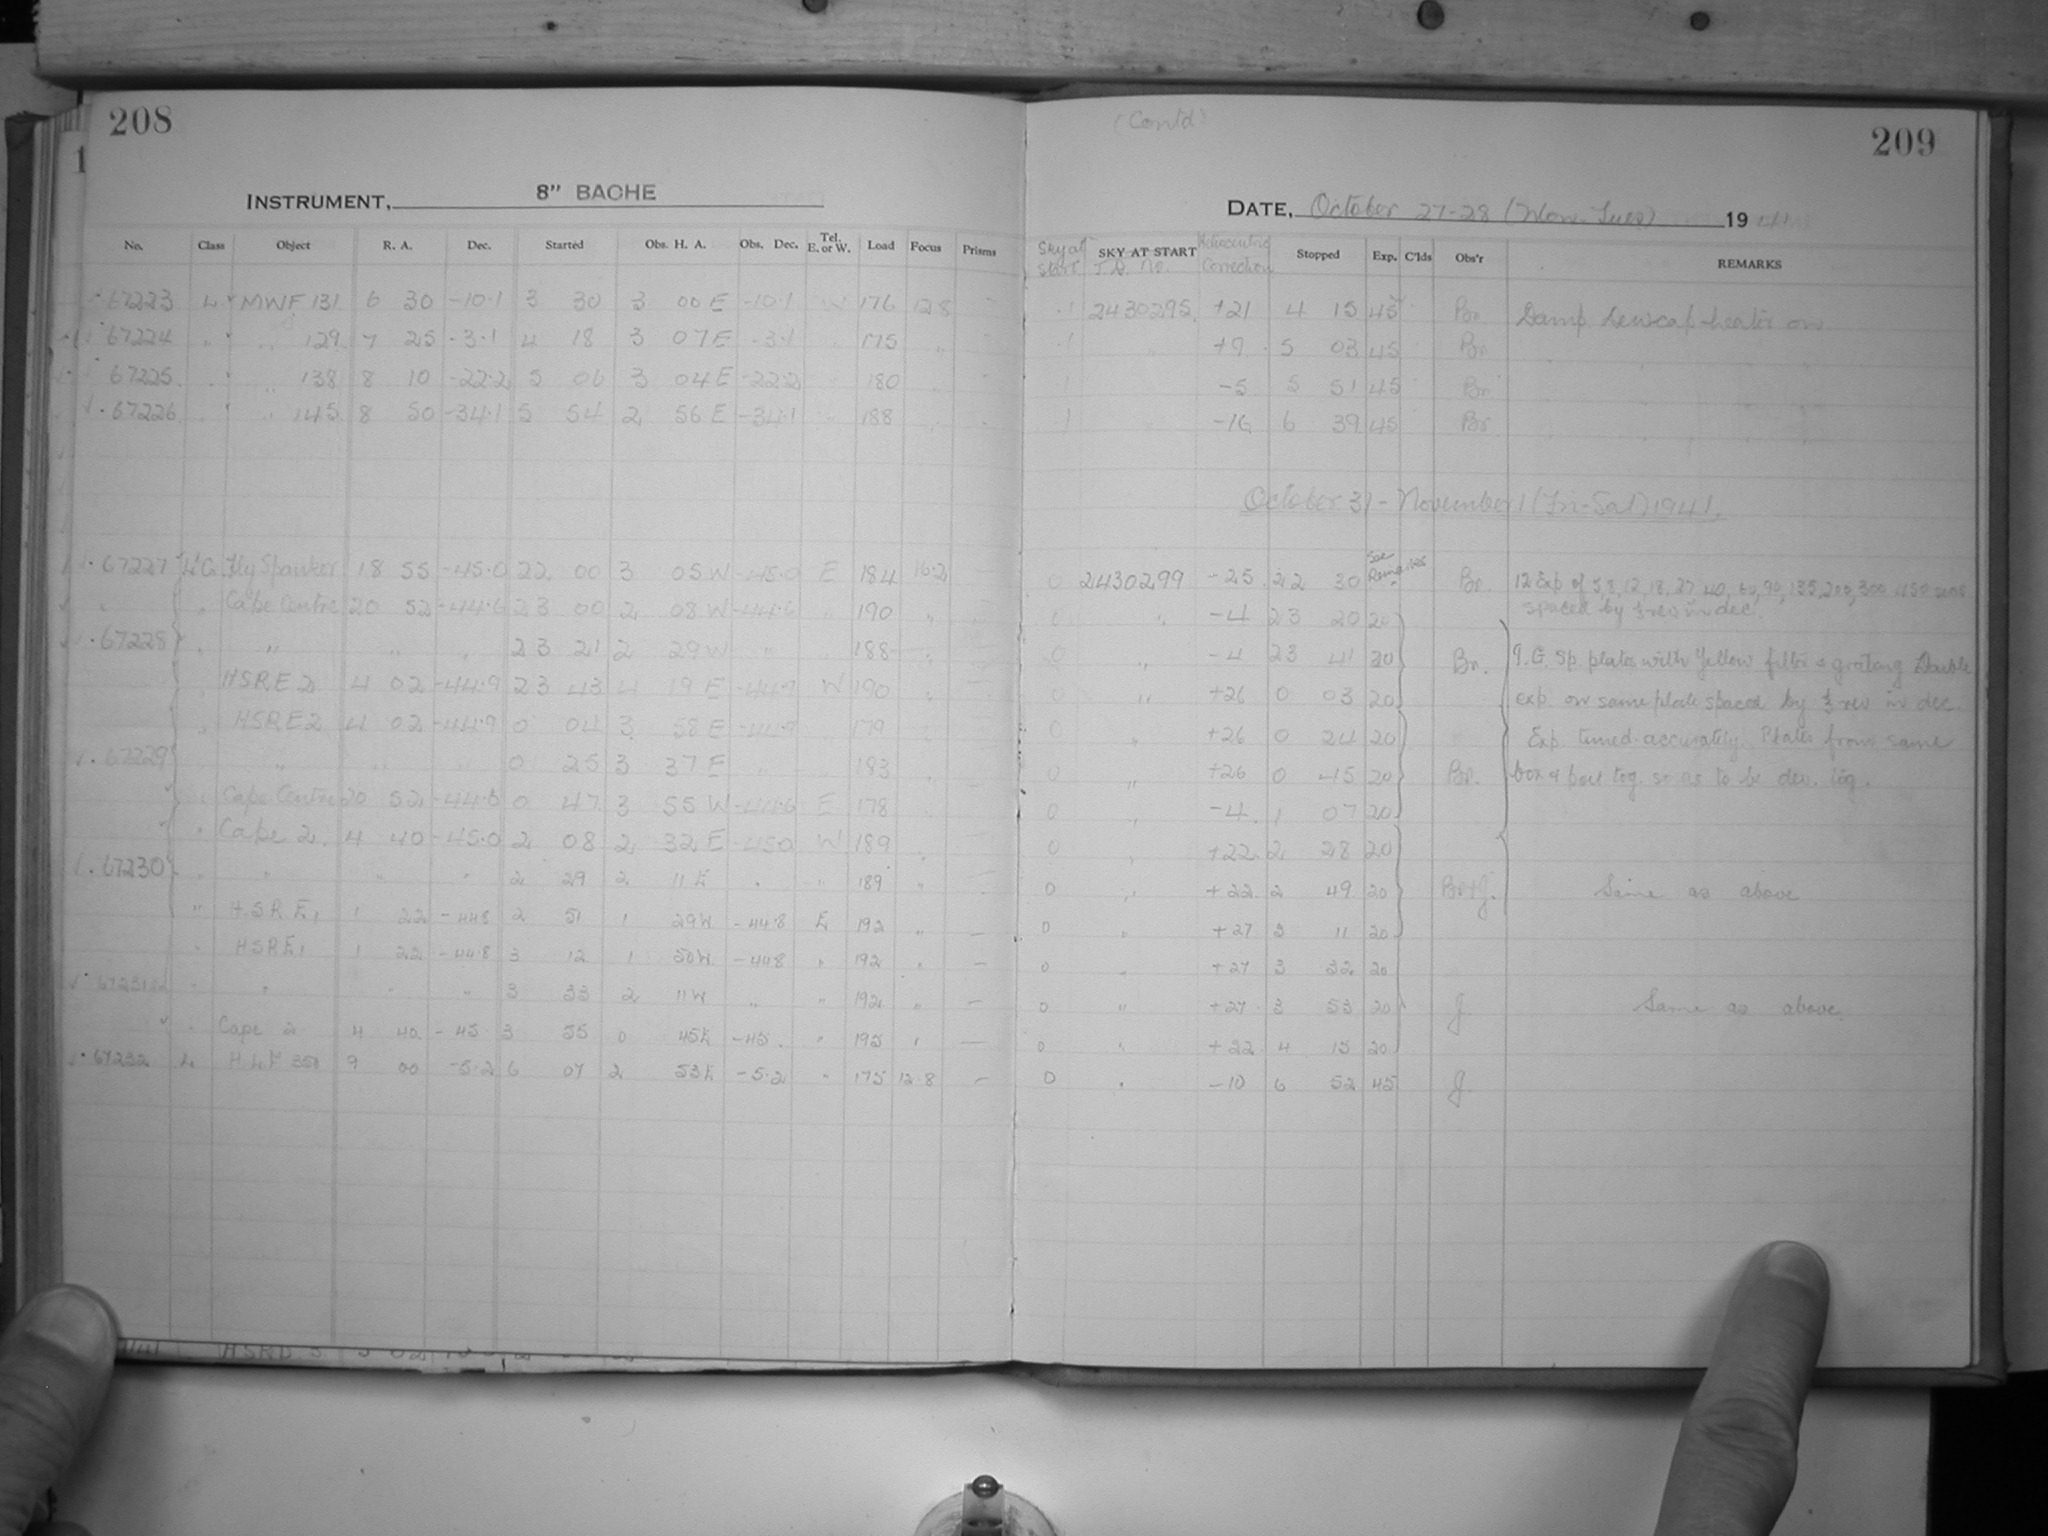 208
INSTRUMENT, 8" BACHE
No. Class Object R. A. Dec. Started Obs. H. A. Obs. Dec. Tel. E. or W. Load Focus Prisms
67223 L MWF 131 6 30 -10.1 3 30 3 00 E -10.1 W 176 12.8
67224 " " 129 7 25 -3.1 4 18 3 07 E -3.1 175 "
67225 " 138 8 10 -22.2 5 06 3 04 E -22.2 " 180
67226 " 145 8 50 -34.1 5 54 2 56 E -34.1 " 188
67227 18 55 -45.0 22 00 3 05 W -45.0 E 184 16.2
" Cape Centre 20 52 -44.6 23 00 2 08 W -44.6 " 190 "
67228 " " " " 23 21 2 29 W " 188 "
HSRE 2 4 02 -44.9 23 43 4 19 E -44.9 W 190 "
" HSRE 2 4 02 -44.9 0 04 3 58 E -44.9 " 179
67229 " " " 0 25 3 37 E " " 183
" Cape Centre 20 52 -44.6 0 47 3 55 W -44.6 E 178
" Cape 2 4 40 -45.0 2 08 2 32 E -45.0 W 189
67230 " " " " 2 29 2 11 E " " 189 "
" H.S.R.E 1 1 22 -44.8 2 51 1 29 W -44.8 E 192 " –
" HSRE 1 1 22 -44.8 3 12 1 50 W -44.8 " 192 " –
" " " " 3 33 2 11 W " " 192 " –
" Cape 2 4 40 -45 3 55 0 45 E -45 " 195 " –
67232 L 9 00 -5.2 6 07 2 53 E -5.2 " 175 12.8 –
(Cont'd)
209
DATE, October 27-28 (Mon-Tues) 19
Sky at start SKY AT START J.D. No. Heliocentric Correction Stopped Exp. C'lds Obs'r REMARKS
1 2430295 +21 4 15 45 Br Damp Dewcap heater on
1 " +9 5 03 45 Br
1 -5 5 51 45 Br
1 " -16 6 39 45 Br
October 31 - November 1 (Fri-Sat) 1941.
0 2430299 -25 22 30 See Remarks Br. 12 Exp of 5, 8, 12, 18, 27, 40, 60, 90, 135, 200, 300 450 secs
spaced by ½ rev in dec.
0 " -4 23 20 20
0 " -4 23 41 20 Br. I.G. Sp. plates with Yellow filter & grating Double
0 " +26 0 03 20 exp. on same plate spaced by ½ rev in dec.
0 " +26 0 24 20 Exp. timed accurately. Plates from same
0 " +26 0 45 20 Br. box & put tog. so as to be dev. tog.
0 " -4 1 07 20
0 " +22 2 28 20
0 " +22 2 49 20 Br & J. Same as above
0 " +27 3 11 20
0 " +27 3 32 20
0 " +27 3 53 20 J. Same as above.
0 " +22 4 15 20
0 " -10 6 52 45 J.